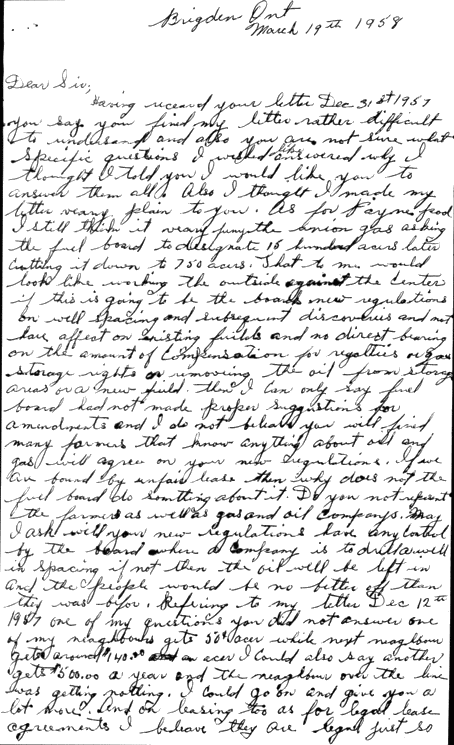 Brigden Ont
March 19th 1958
Dear Sir,
Having receavd your letter Dec 31st 1957
you say you find my letter rather difficult
to undersand and also you are not sure what
specific questions I wished like answered why I
thought I told you I would like you to
answer them all. Also I thought I made my
letter veary plain to you. As for Payne pool
I still think it veary funy the union gas asking
the fuel board to designate 15 hundred acers later
cutting it down to 750 acers. That to me would
look like working the outside against the center
if this is going to be the board new regulations
on well spacing and subsequent discoveries and not
have affect on existing fields and no direct bearing
on the amount of compensation for royalties or gas
storage rights or removing the oil from storage
areas or a new field. then I can only say fuel
board had not made proper suggestions for
amendments and I do not beleave you will find
many farmers that know anything about oil and
gas will agree on your new regulations. If we
are bound by unfair lease then why does not the
fuel board do somthing about it. Do you not repesent
the farmers as well as gas and oil companys. May
I ask will your new regulations have any control
by the board where a company is to drill a well
in spacing if not then the oil will be left in
and the people would be no better off than
they was befor. Refering to my letter Dec 12th
1957 one of my questions you did not answer one
of my neaghbours gets 50¢ acer while next neaghbour
gets around $140.00 an acer I could also say another
gets $500.00 a year and the neaghbour over the line
was getting nothing. I could go on and give you a
lot more. And on leasing too as for legal lease
agreements I beleave they are legal just so